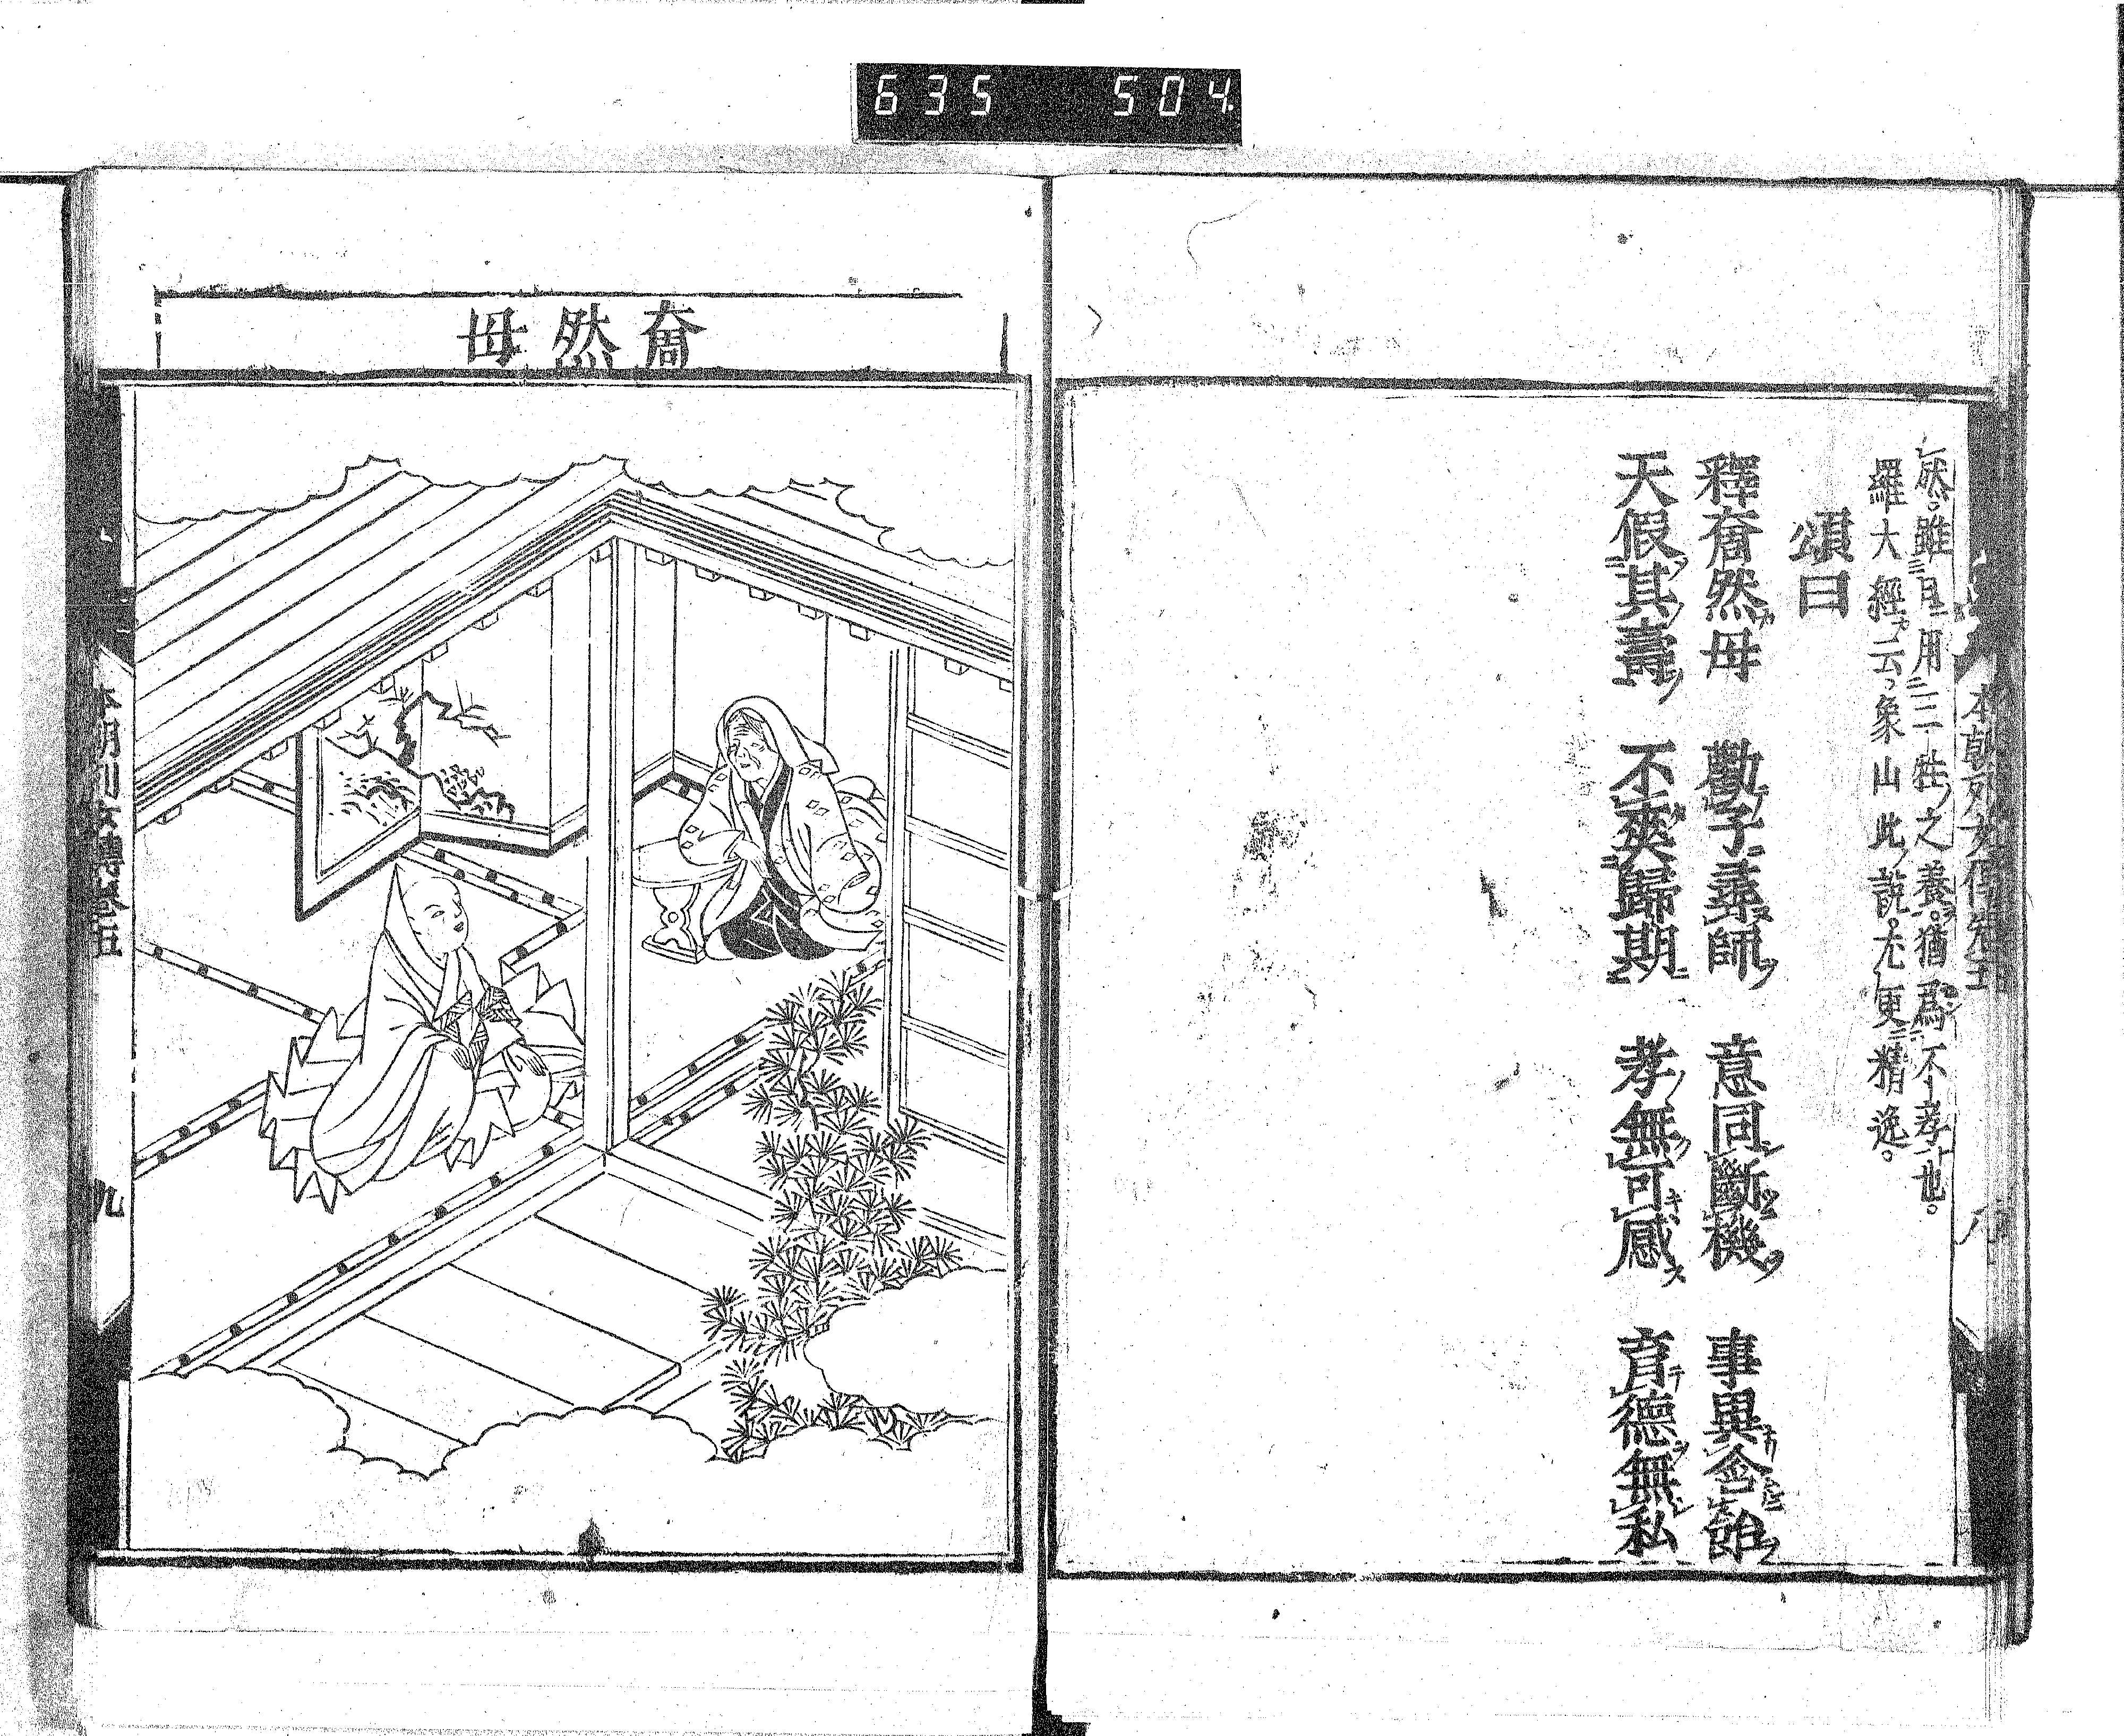 635 504
然。雖日用三牲之養。猶爲不孝也。
羅大經云、象山此說。尤更精逸。
頌曰
釋奝然母 勸子尋師 意同斷機 事異含飴
天假其壽 不爽歸期 孝無可感 育德無私
奝然母
本朝列女傳卷五
九